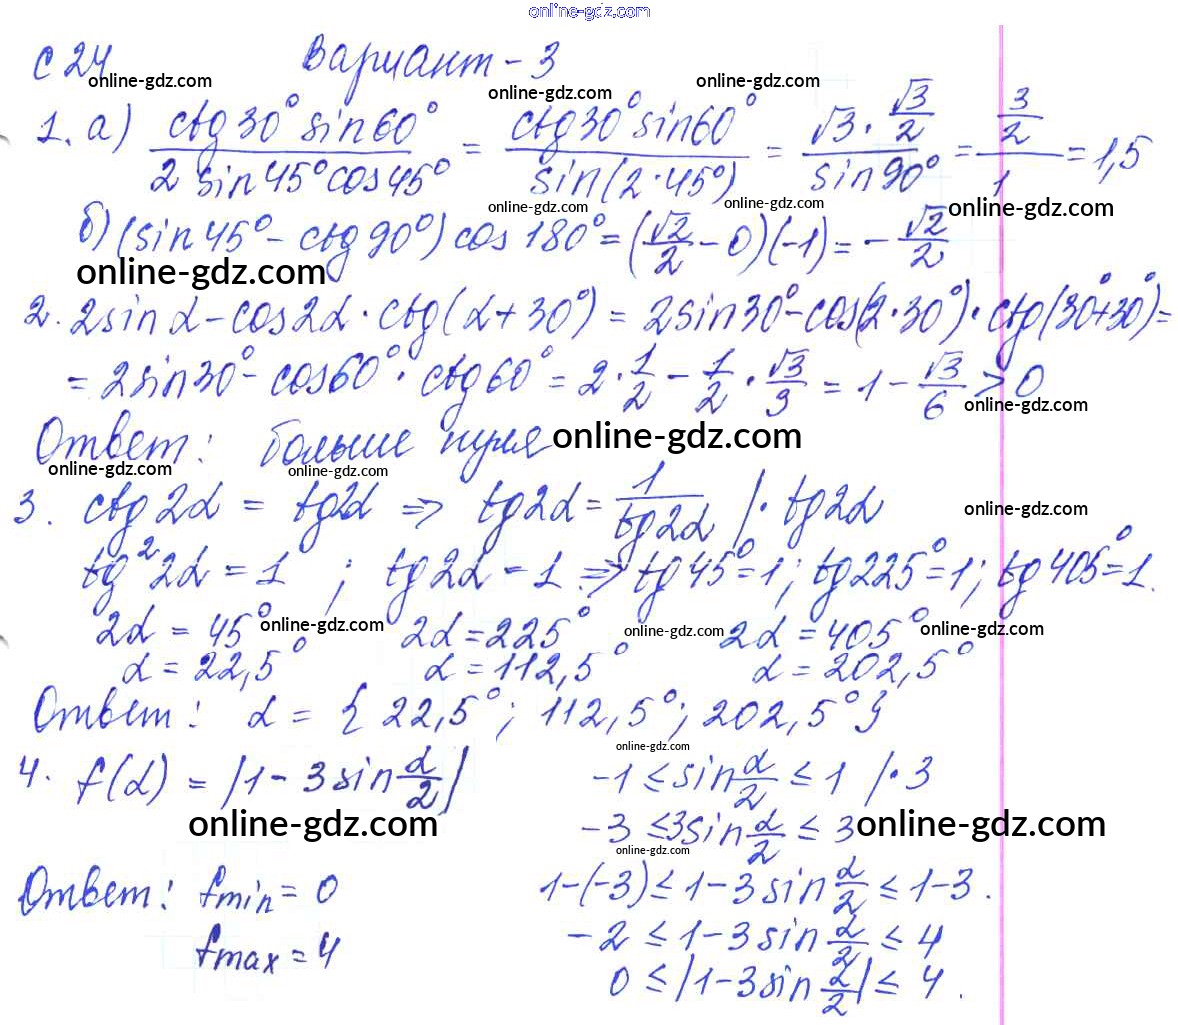 online-gdz.com
С 24 Вариант - 3
online-gdz.com online-gdz.com online-gdz.com
1. а) ctg 30° sin 60° / 2 sin 45° cos 45° = ctg 30° sin 60° / sin (2·45°) = √3 · √3/2 / sin 90° = 3/2 / 1 = 1,5
online-gdz.com online-gdz.com online-gdz.com
б) (sin 45° - ctg 90°) cos 180° = (√2/2 - 0)(-1) = - √2/2
online-gdz.com
2. 2 sin α - cos 2α · ctg (α + 30°) = 2 sin 30° - cos (2·30°) · ctg (30° + 30°) =
= 2 sin 30° - cos 60° · ctg 60° = 2 · 1/2 - 1/2 · √3/3 = 1 - √3/6 > 0
online-gdz.com
Ответ: больше нуля online-gdz.com
online-gdz.com online-gdz.com
3. ctg 2α = tg 2α => tg 2α = 1/tg 2α | · tg 2α
online-gdz.com
tg² 2α = 1 ; tg 2α = 1 => tg 45° = 1; tg 225° = 1; tg 405° = 1.
2α = 45° online-gdz.com 2α = 225° online-gdz.com 2α = 405° online-gdz.com
α = 22,5° α = 112,5° α = 202,5°
Ответ: α = { 22,5°; 112,5°; 202,5° }
online-gdz.com
4. f(α) = |1 - 3 sin α/2| -1 ≤ sin α/2 ≤ 1 | · 3
online-gdz.com -3 ≤ 3 sin α/2 ≤ 3 online-gdz.com
online-gdz.com
Ответ: fmin = 0 1-(-3) ≤ 1 - 3 sin α/2 ≤ 1-3.
fmax = 4 -2 ≤ 1 - 3 sin α/2 ≤ 4
0 ≤ |1 - 3 sin α/2| ≤ 4.